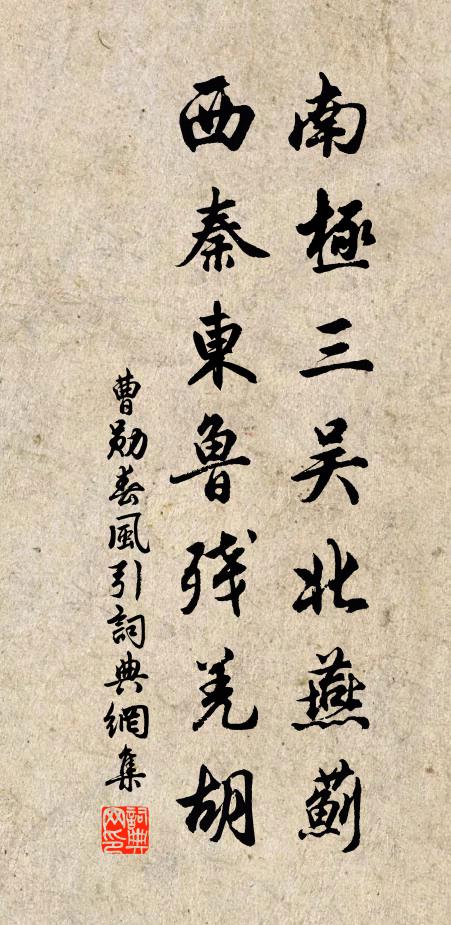 南極三吴北燕薊
西秦東魯殘羌胡
曹勛春風引詞典網集
詞典网印